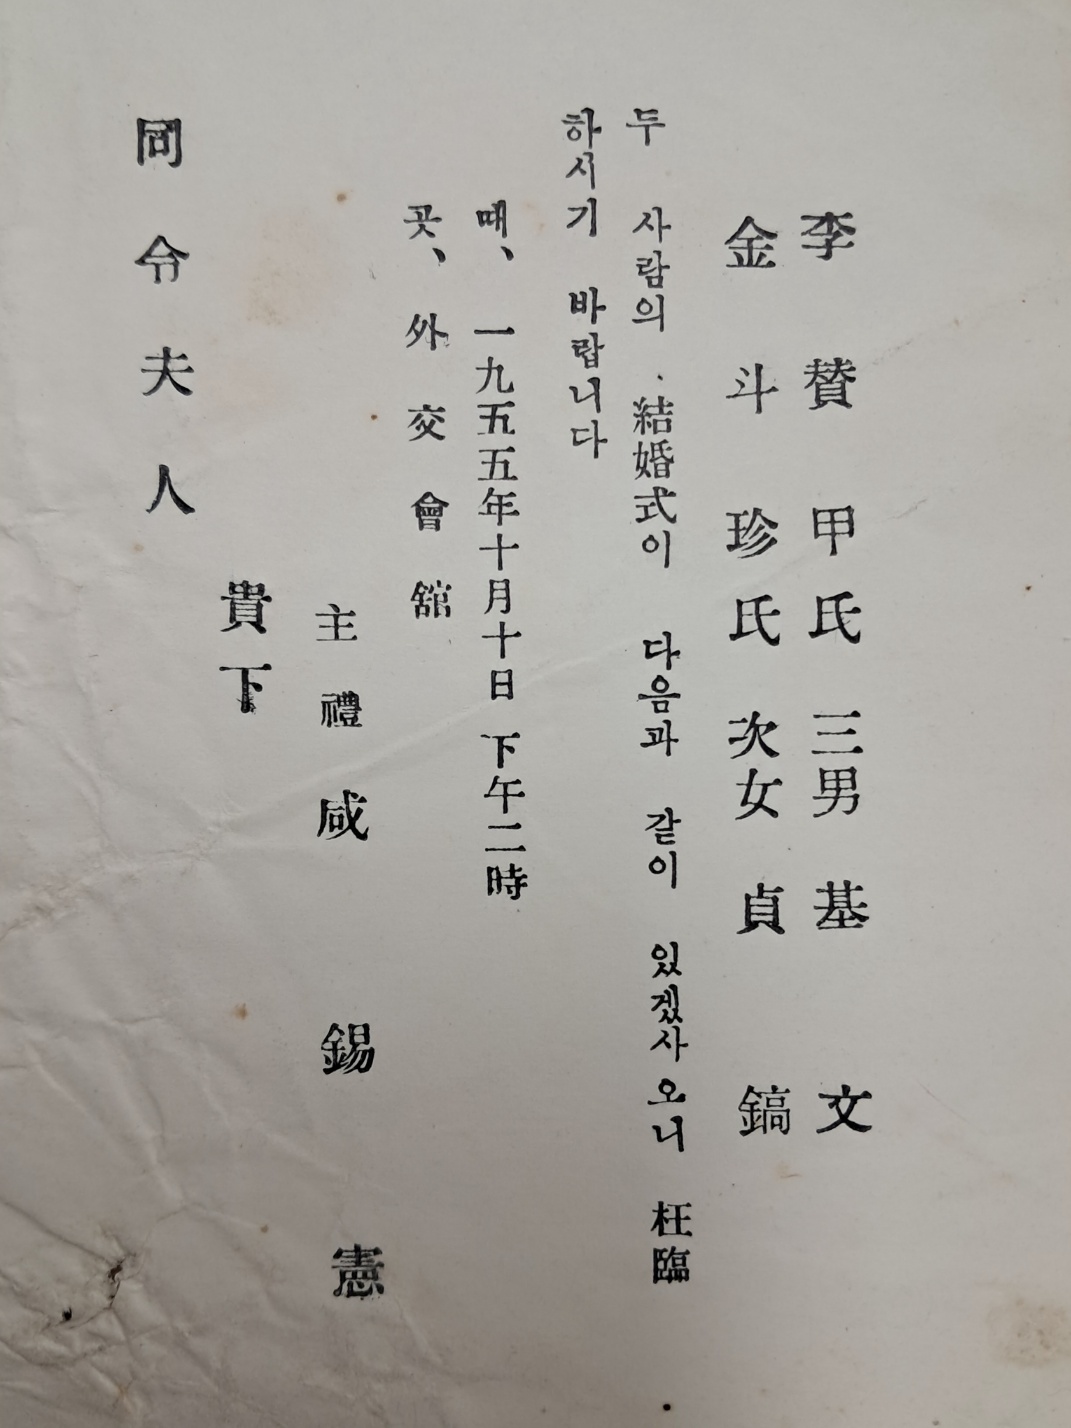 李贊甲氏 三男 基文
金斗珍氏 次女 貞鎬
두 사람의 結婚式이 다음과 같이 있겠사오니 枉臨
하시기 바랍니다
때、一九五五年十月十日 下午二時
곳、外交會舘
主禮 咸錫憲
貴下
同令夫人